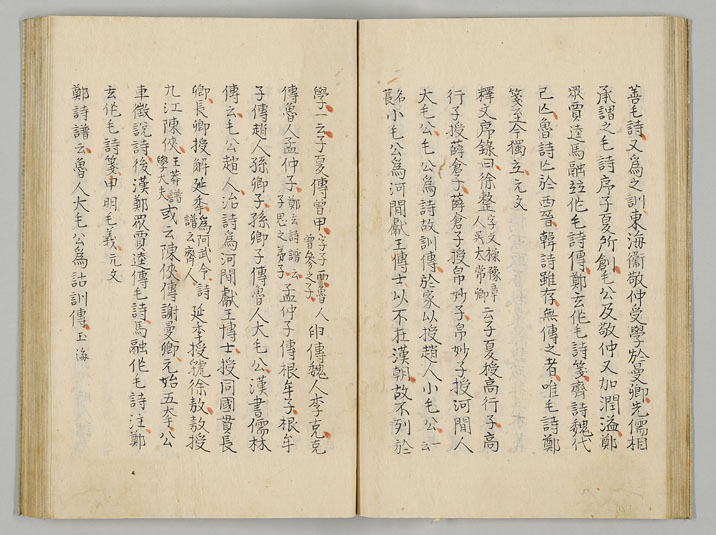 善毛詩又為之訓東海衞敬仲受學於曼卿先儒相
承謂之毛詩序子夏所創毛公及敬仲又加潤溢鄭
眾賈逵馬融竝作毛詩傳鄭玄作毛詩箋齊詩魏代
已亾魯詩亾於西晉韓詩雖存無傳之者唯毛詩鄭
箋至今獨立元文
釋文序錄曰徐整字文操豫章人吳太常卿云子夏授高行子高
行子授薛倉子薛倉子授帛妙子帛妙子授河閒人
大毛公毛公為詩故訓傳於家以授趙人小毛公一云
名長小毛公為河閒獻王博士以不在漢朝故不列於
學一云子夏傳曾甲字子西魯曾參之子人傳魏人李克克
傳魯人孟仲子鄭玄詩譜云子思之弟子孟仲子傳根牟子根牟
子傳趙人孫卿子孫卿子傳魯人大毛公漢書儒林
傳云毛公趙人治詩為河閒獻王博士授同國貫長
卿長卿授解延年為阿武令詩譜云齊人延年授虢徐敖敖授
九江陳俠王莽講學大夫或云陳俠傳謝曼卿元始五年公
車徵說詩後漢鄭眾賈逵傳毛詩馬融作毛詩注鄭
玄作毛詩箋申明毛義元文
鄭詩譜云魯人大毛公為詁訓傳玉海